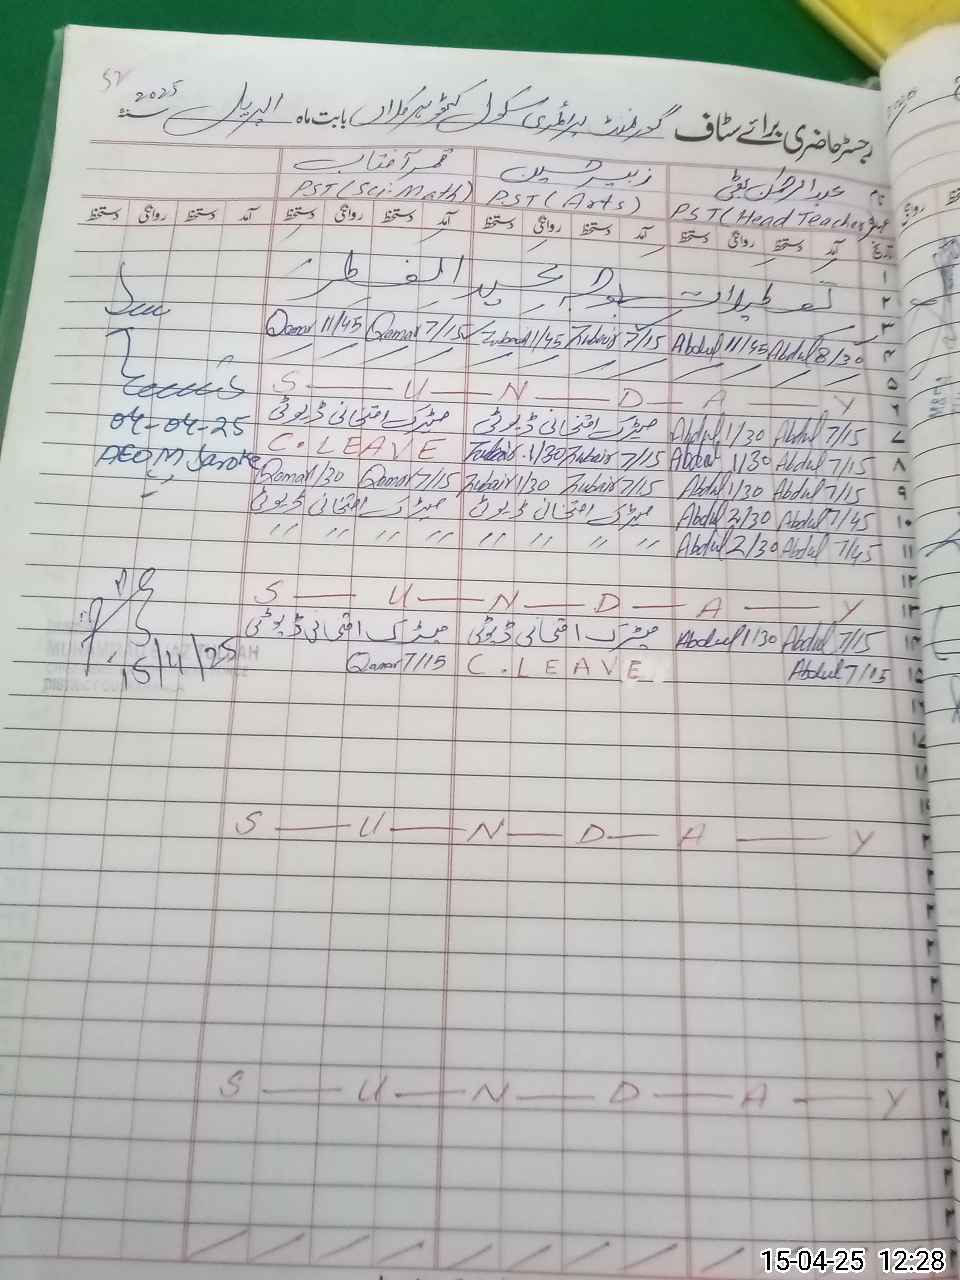 رجسٹر حاضری برائے سٹاف گورنمنٹ پرائمری سکول بابت ماہ اپریل سنہ 2025
نام عبدالرحمن زبیر حسین قمر آفتاب
عہدہ PST (Head Teacher) PST (Arts) PST (Sci Math)
تاریخ آمد دستخط روانگی دستخط آمد دستخط روانگی دستخط آمد دستخط روانگی دستخط آمد دستخط روانگی دستخط
۱
۲ تعطیلات بوجہ عید الفطر
۳
۴ Abdul 8/30 Abdul 11/45 Zubair 7/15 Zubair 11/45 Qamar 7/15 Qamar 11/45
۵
۶ S — U — N — D — A — Y
۷ Abdul 7/15 Abdul 1/30 میٹرک امتحانی ڈیوٹی میٹرک امتحانی ڈیوٹی
04-04-25
۸ Abdul 7/15 Abdul 1/30 Zubair 7/15 Zubair 1/30 C. LEAVE
AEO M
۹ Abdul 7/15 Abdul 1/30 Zubair 7/15 Zubair 1/30 Qamar 7/15 Qamar 1/30
۱۰ Abdul 7/45 Abdul 2/30 میٹرک امتحانی ڈیوٹی میٹرک امتحانی ڈیوٹی
۱۱ Abdul 7/45 Abdul 2/30 〃 〃 〃 〃 〃 〃 〃 〃
۱۲
۱۳ S — U — N — D — A — Y
۱۴ Abdul 7/15 Abdul 1/30 میٹرک امتحانی ڈیوٹی میٹرک امتحانی ڈیوٹی
۱۵ Abdul 7/15 C. LEAVE Qamar 7/15
15/4/25
S — U — N — D — A — Y
S — U — N — D — A — Y
15-04-25 12:28